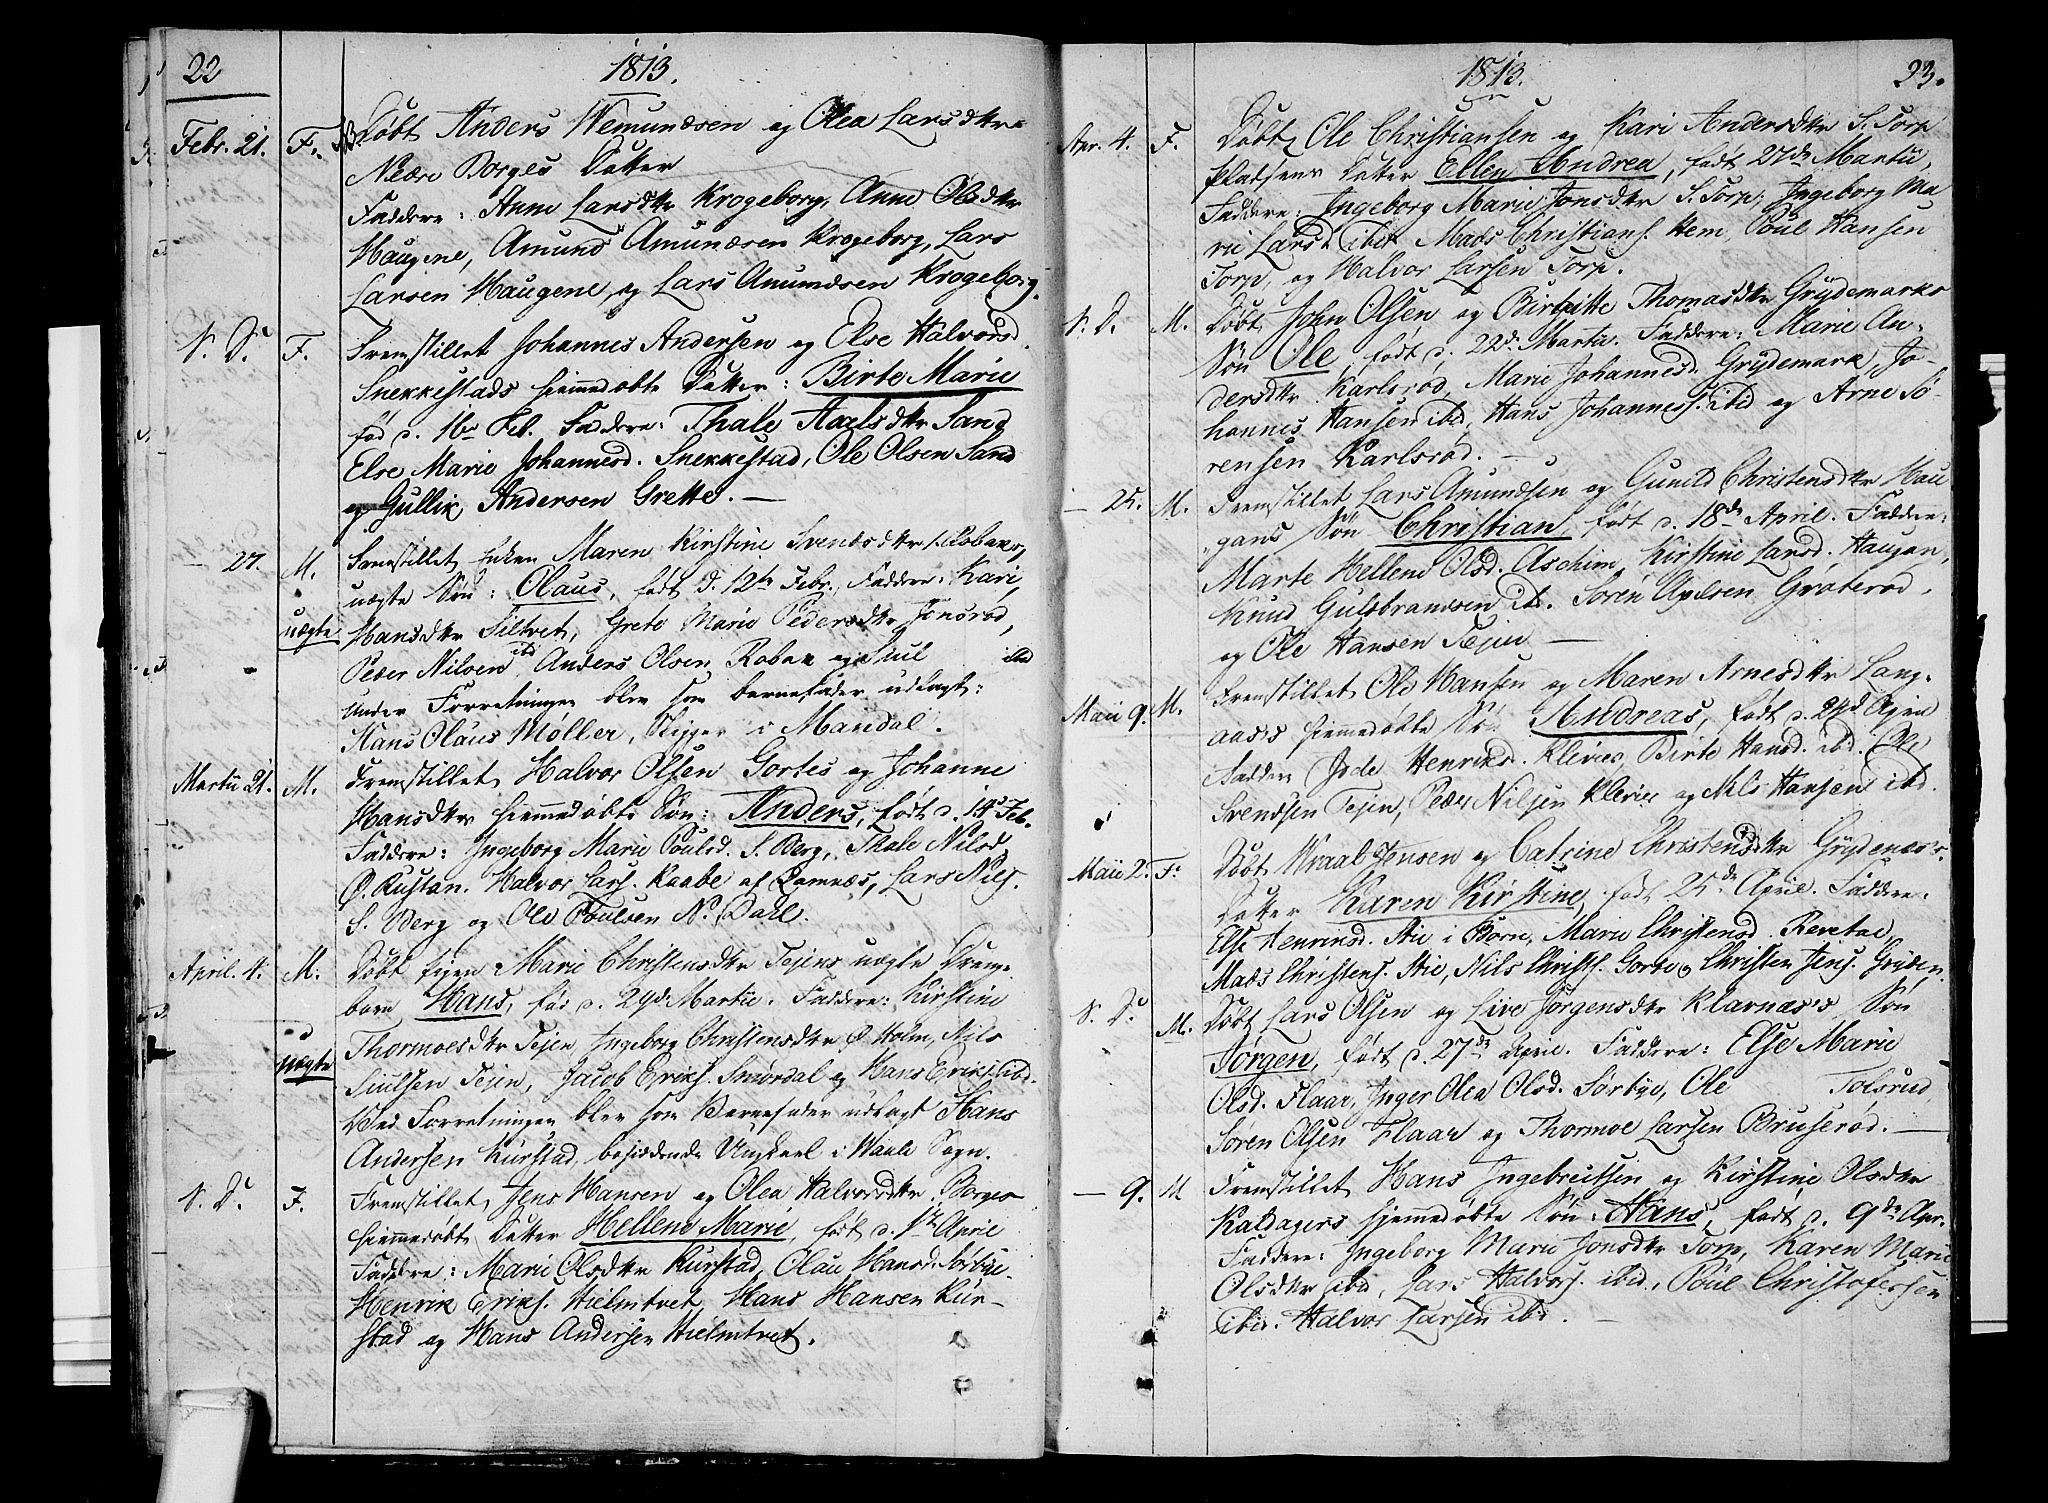 22
1813.
Febr. 21. F. NB. Døbt Anders Wemundsen og Olea Larsdtr
Nedre Borges Datter
Faddere: Anne Larsdtr Krogeborg, Anne Olsdtr
Haugene, Amund Amundsen Krogeborg, Lars
Larsen Haugene, og Lars Amundsen Krogeborg.
S. D. F. Fremstillet Johannes Andersen og Else Halvorsd.
Snekkestads hiemmedøbte Datter: Birte Marie
fød d. 16de Feb. Faddere: Thale Axelsdtr Sand
Else Marie Johannesd. Snekkestad, Ole Olsen Sand
og Gullik Andersen Grette. —
— 27. M. Fremstillet Maren Kirstine Svendsdtr Robaks
uægte Søn: Olaus, født d. 12te Febr. Faddere: Kari
uægte Hansdtr Siltvet, Grete Marie Pedersdtr Jonsrød,
Peder Nilsen ibid Anders Olsen Robak og Siul ibid
Under Forretningen blev som barnefader udlagt:
Hans Olaus Møller, Skipper i Mandal.
Martii 21. M. Fremstillet Halvor Olsen Gortes og Johanne
Hansdtrs hiemmedøbte Søn: Anders, født d. 14de Feb.
Faddere: Ingeborg Marie Poulsd. S. Berg, Thale Nilsd.
Ø. Rustan. Halvor Lars. Raabe af Ramnæs, Lars Nils.
S. Berg og Ole Poulsen N. Dahl.
April. 4. M. Døbt Pigen Marie Christensdtr Tejens uægte Drenge
barn Hans, fød d. 29de Martii. Faddere: Kirstine
Thormoesdtr Tejen, Ingeborg Christensdtr Ø. Holm, Nils
uægte Siulsen Tejen, Jacob Eriks. Smørdal og Hans Eriks. ibd.
Ved Forretningen blev som Barnefader udlagt Hans
Andersen Kurstad, besiddende Ungkarl i Waale Sogn.
S. D. F. Fremstillet Jens Hansen og Olea Halvorsdtr Borges
hiemmedøbte Datter Hellene Marie, født d. 1te April
Faddere: Marie Olsdtr Kurstad, Olau Hansd. Sørbye
Henrik Eriks. Hielmtvet, Hans Hansen Kur-
stad og Hans Andersen Hielmtvet.
1813.
23.
Apr. 4. F. Døbt Ole Christiansen og Kari Andersdtr S. Torp
pladsens Datter Ellen Andrea, født 27de Martii,
Faddere: Ingeborg Marie Jonsdtr S. Torp, Ingeborg Ma
rie Larsd. ibid Mads Christians. Hem, Poul Hansen
Torp, og Halvor Larsen Torp.
S. D. M. Døbt John Olsen og Birgitte Thomasdtr Grydemarks
Søn Ole, født d. 22de Martii. Faddere: Marie An-
dersdtr Karlsrød, Marie Johannesd. Grydemark, Jo-
hannes Hansen ibid, Hans Johanness. ibid og Arne Sø-
rensen Karlsrød. —
— 25. M. Fremstillet Lars Amundsen og Gunild Christensdtr Hau
gans Søn Christian født d. 18de April. Faddere:
Marte Hellene Olsd. Aschim, Kirstine Larsd. Haugan,
Knud Gulbrandsen ib. Søren Axelsen Grøterød,
og Ole Hansen Tejen —
Maii 9. M. Fremstillet Ole Hansen og Maren Arnesdtr Lang-
aas's hiemmedøbte Søn Andreas, født d. 24de April
Faddere Jode Henriksd. Klevies, Birte Hansd. ibd. Ole
Svendsen Tejen, Peder Nilsen Klevier og Nils Hansen ibd.
Maii 2. F. Døbt Wraal Jensen og Catrine Christensdtr Grydenes's
Datter Karen Kirstine, født 25de April. Faddere:
Else Henriksd. Stie i Børn, Marie Christensd. Revetal,
Mads Christens. Stie, Nils Christs. Gorte og Christen Jens. Gryden.
S. D. M. Døbt Lars Olsen og Live Jørgensdtr Klarnæs's Søn
Jørgen, født d. 27de April. Faddere: Else Marie
Olsd. Flaar, Inger Olea Olsd. Sørbye, Ole Tolsrud
Søren Olsen Flaar og Thormoe Larsen Bruserød. —
— 9. M Fremstillet Hans Ingebretsen og Kirstine Olsdtr
Kaldagers hjemmedøbte Søn: Hans, født d. 9de Apr.
Faddere: Ingeborg Marie Jonsdtr Torp, Karen Marie
Olsdtr ibid, Lars Halvors. ibid. Poul Christofersen
ibid. Halvor Larsen ibd. —